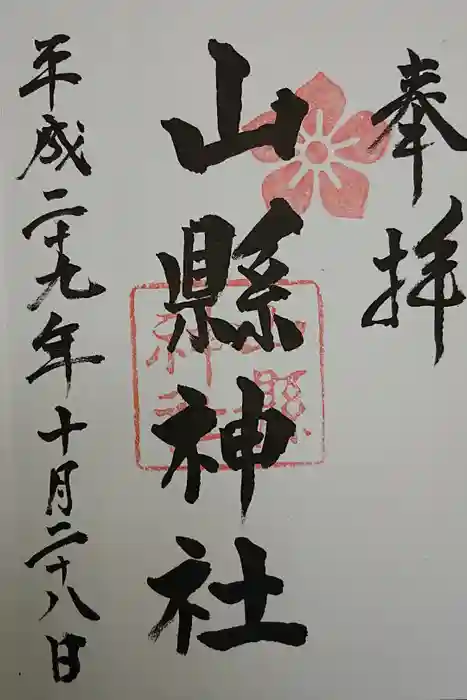 奉拝
山縣神社
山縣神社
平成二十九年十月二十八日